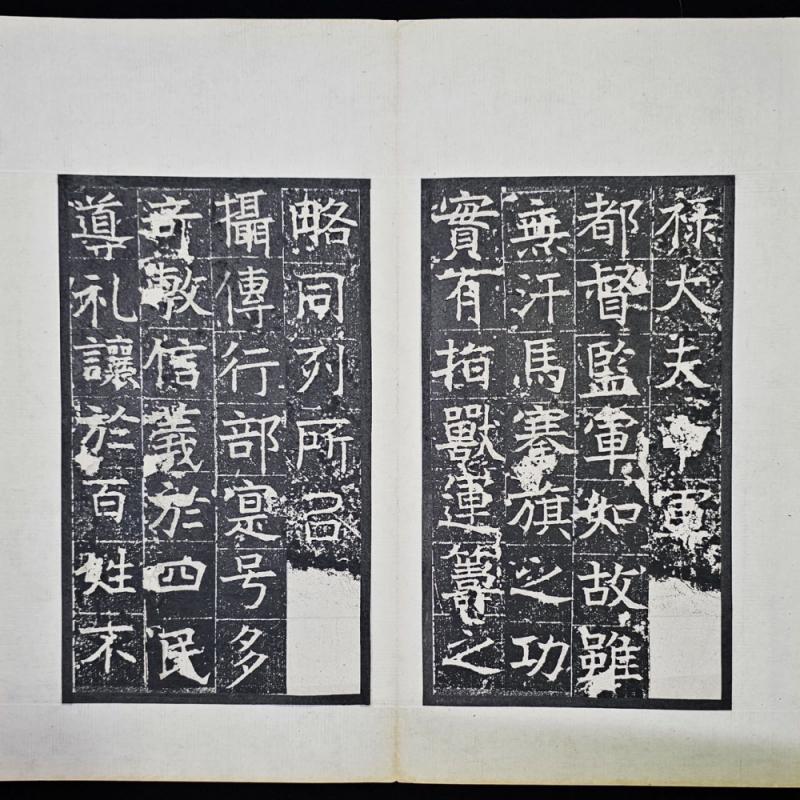 祿大夫中軍
都督監軍如故雖
無汗馬搴旗之功
實有指獸運籌之
略同列所
攝傳行部寔号多
奇敷信義於四民
導礼讓於百姓末